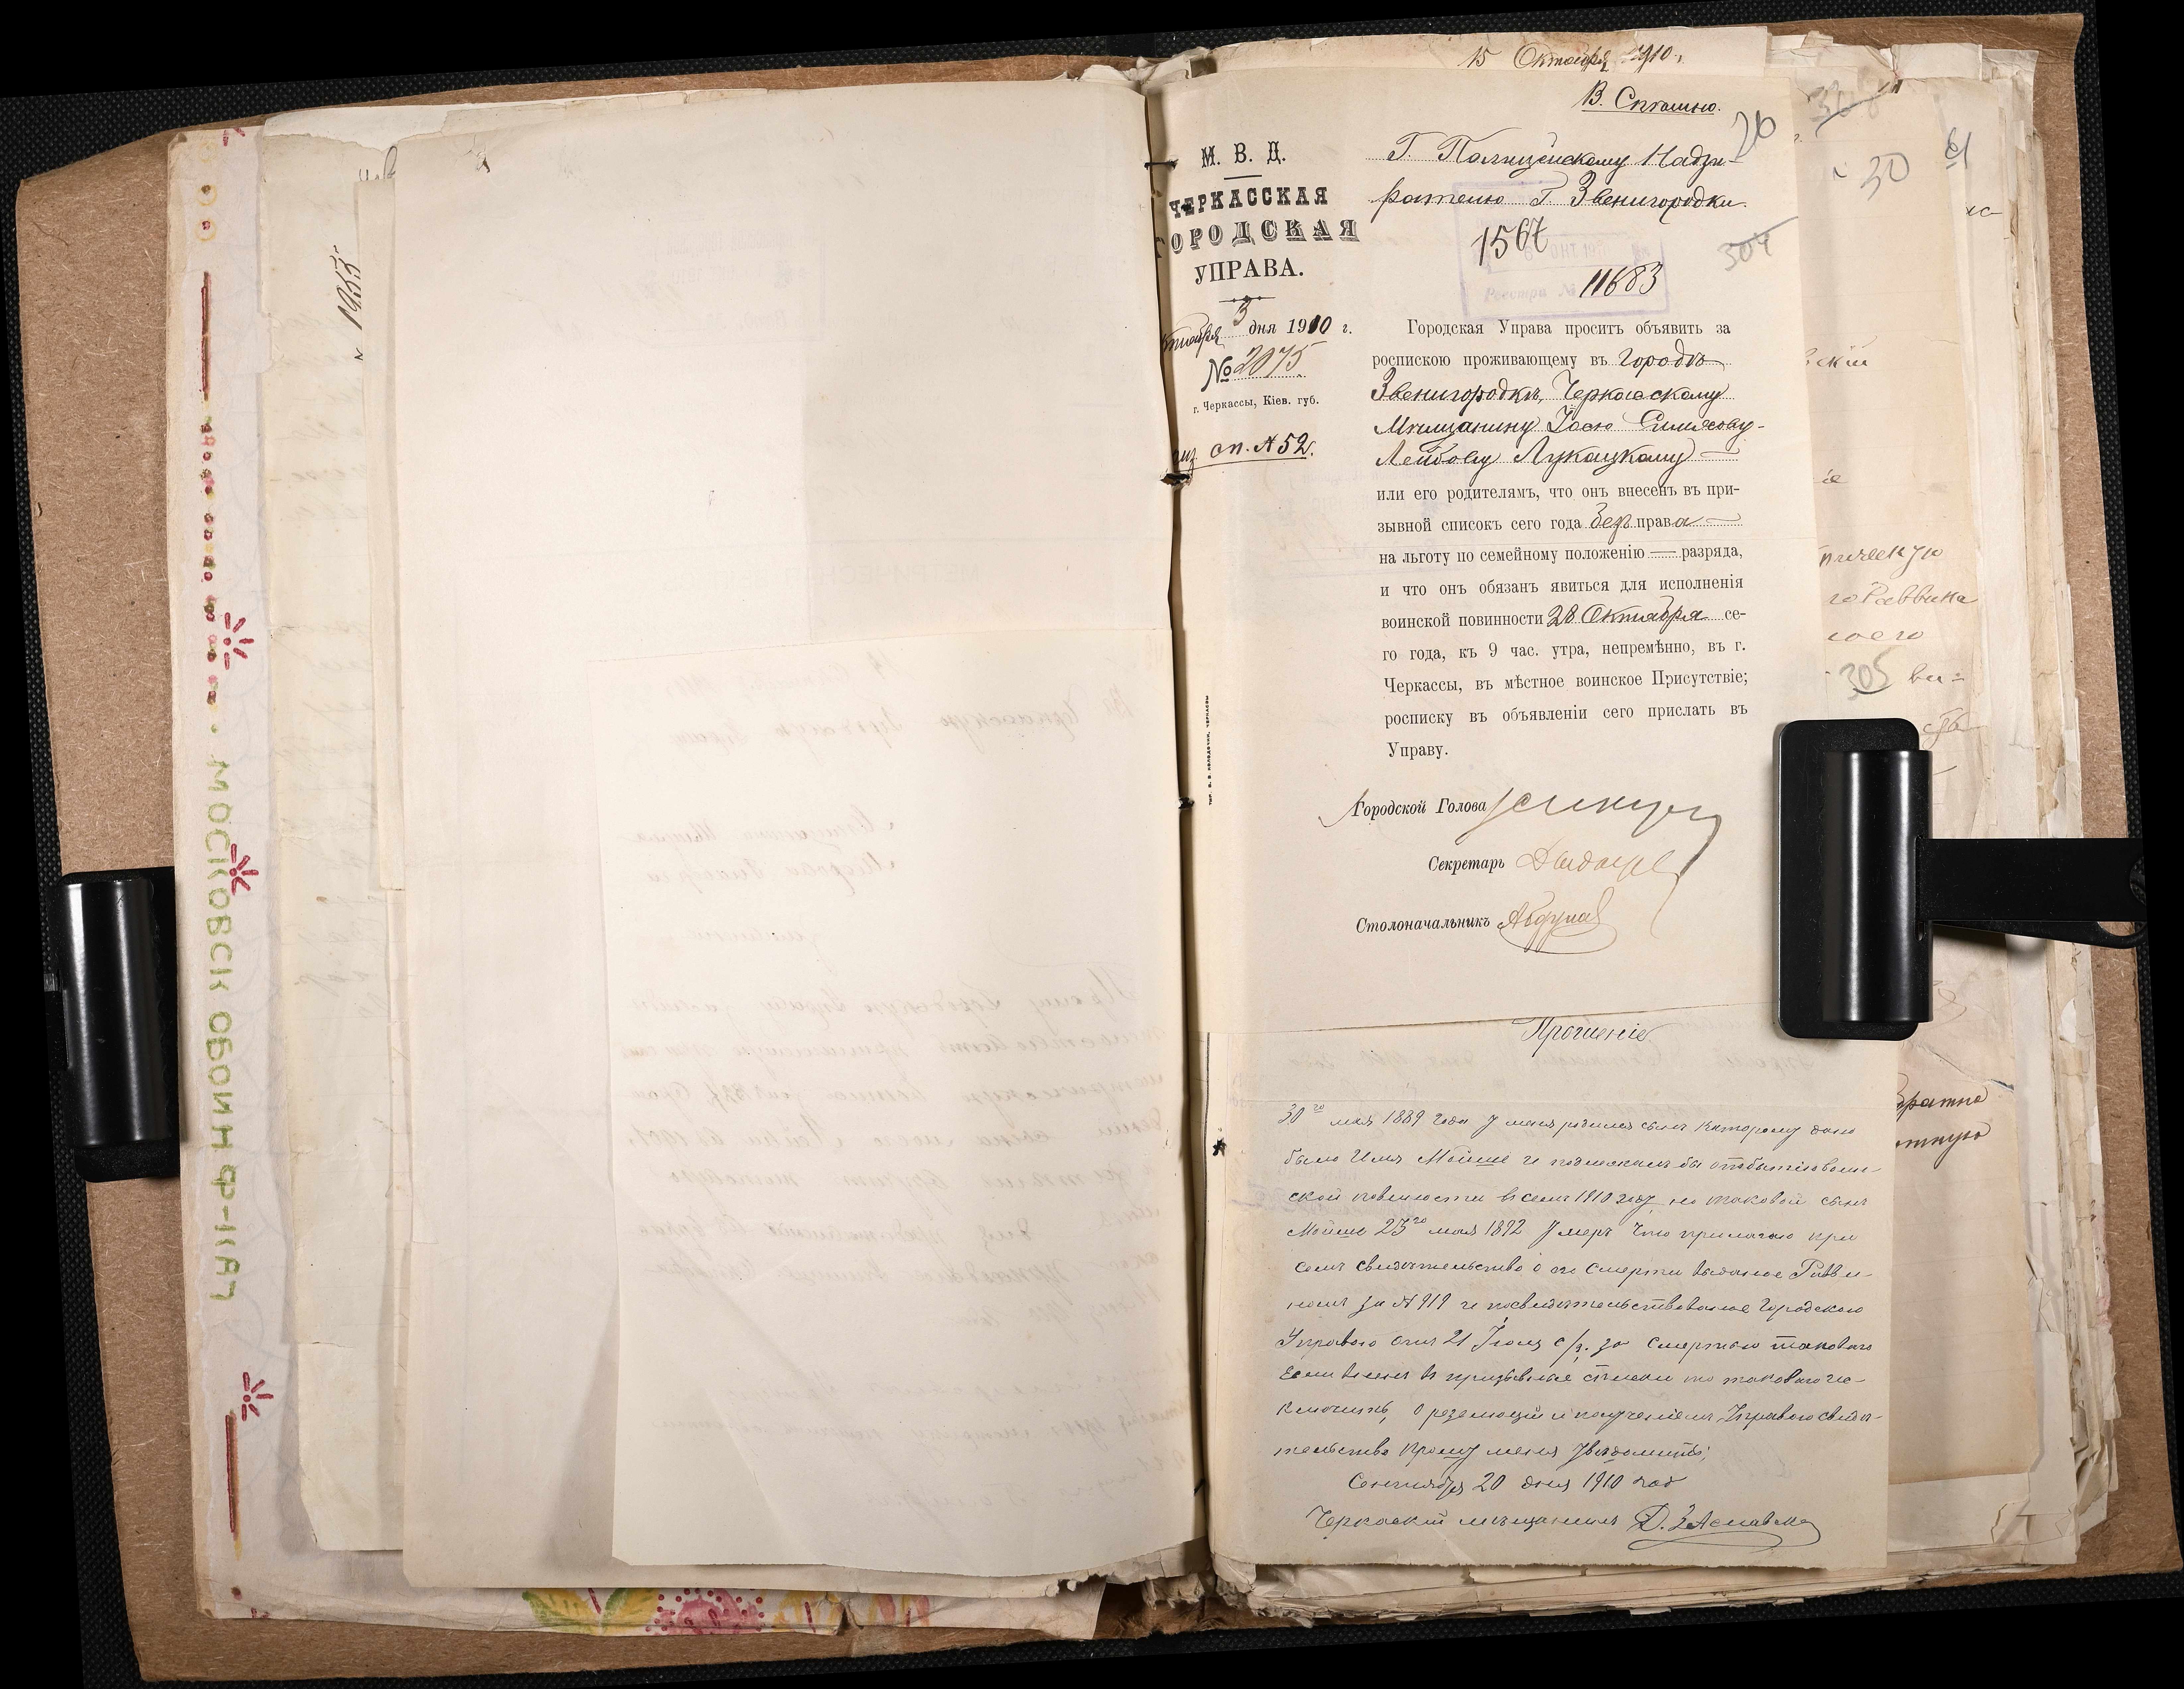 15 Октября 1910 г.
В. Спѣшно.
20
М. В. Д.
ЧЕРКАССКАЯ
ГОРОДСКАЯ
УПРАВА.
Октября 3 дня 1910 г.
№ 2075
г. Черкассы, Кіев. губ.
сп. № 52.
Г. Полицейскому Надзи-
рателю Г. Звенигородки.
1567
304
Реестра №
11683
Городская Управа проситъ объявить за
роспискою проживающему въ городѣ
Звенигородкѣ, Черкасскому
Мѣщанину Іосю Симхову-
Лейбову Лукацкому
или его родителямъ, что онъ внесенъ въ при-
зывной списокъ сего года безъ права
на льготу по семейному положенію — разряда,
и что онъ обязанъ явиться для исполненія
воинской повинности 28 Октября се-
го года, къ 9 час. утра, непремѣнно, въ г.
Черкассы, въ мѣстное воинское Присутствіе;
росписку въ объявленіи сего прислать въ
Управу.
Городской Голова
Секретарь
Столоначальникъ
Прошеніе
30го мая 1889 года у меня родился сынъ которому дано
было Имя Мойше и подлежалъ бы отбытію воин-
ской повинности в семъ 1910 году, но таковой сынъ
Мойше 25го мая 1892 Умеръ что прилагаю при
семъ свидѣтельство о его смерти выданое Равви-
номъ за № 919 и посвидѣтельствованое Городскою
Управою отъ 21 Іюля с/г. за смертью таковаго
Если внесен в призывные списки то таковаго ис-
ключить, о резолюціи и полученіемъ Управою свидѣ-
тельства прошу меня увѣдомить;
Сентября 20 дня 1910 год
Черкаскій мѣщанинъ Д. Заславскій
№ 1955
30
305
ви-
скій
го Раввина
моего
обратно
МОСКОВСК ОБОЙН Ф-КА